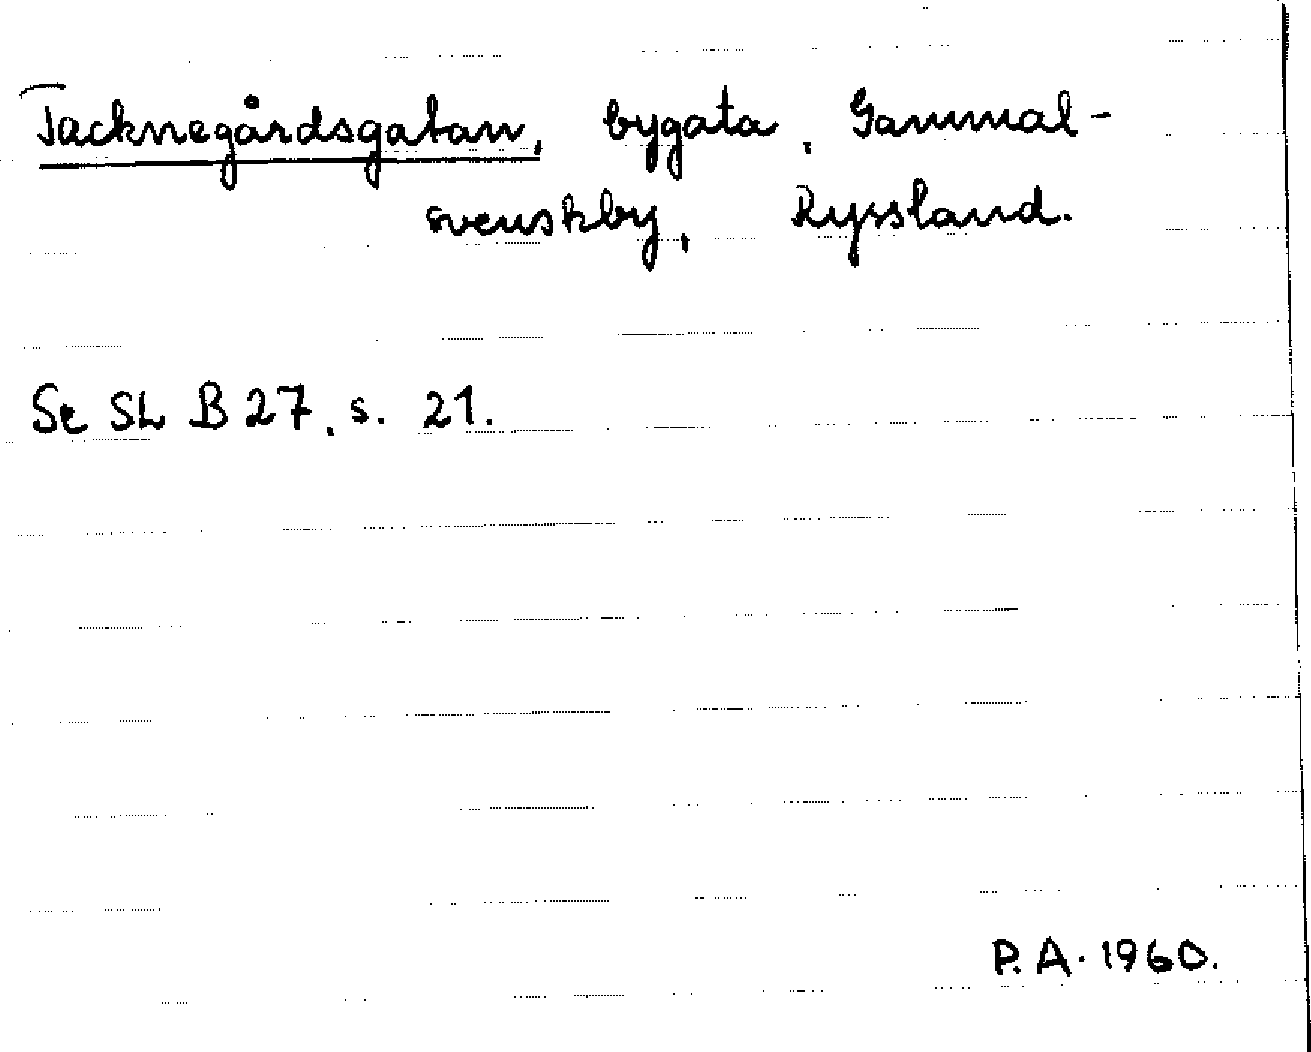 Tacknegårdsgatan, bygata, Gammal-
svenskby, Ryssland.
Se SL B 27, s. 21.
P.A. 1960.